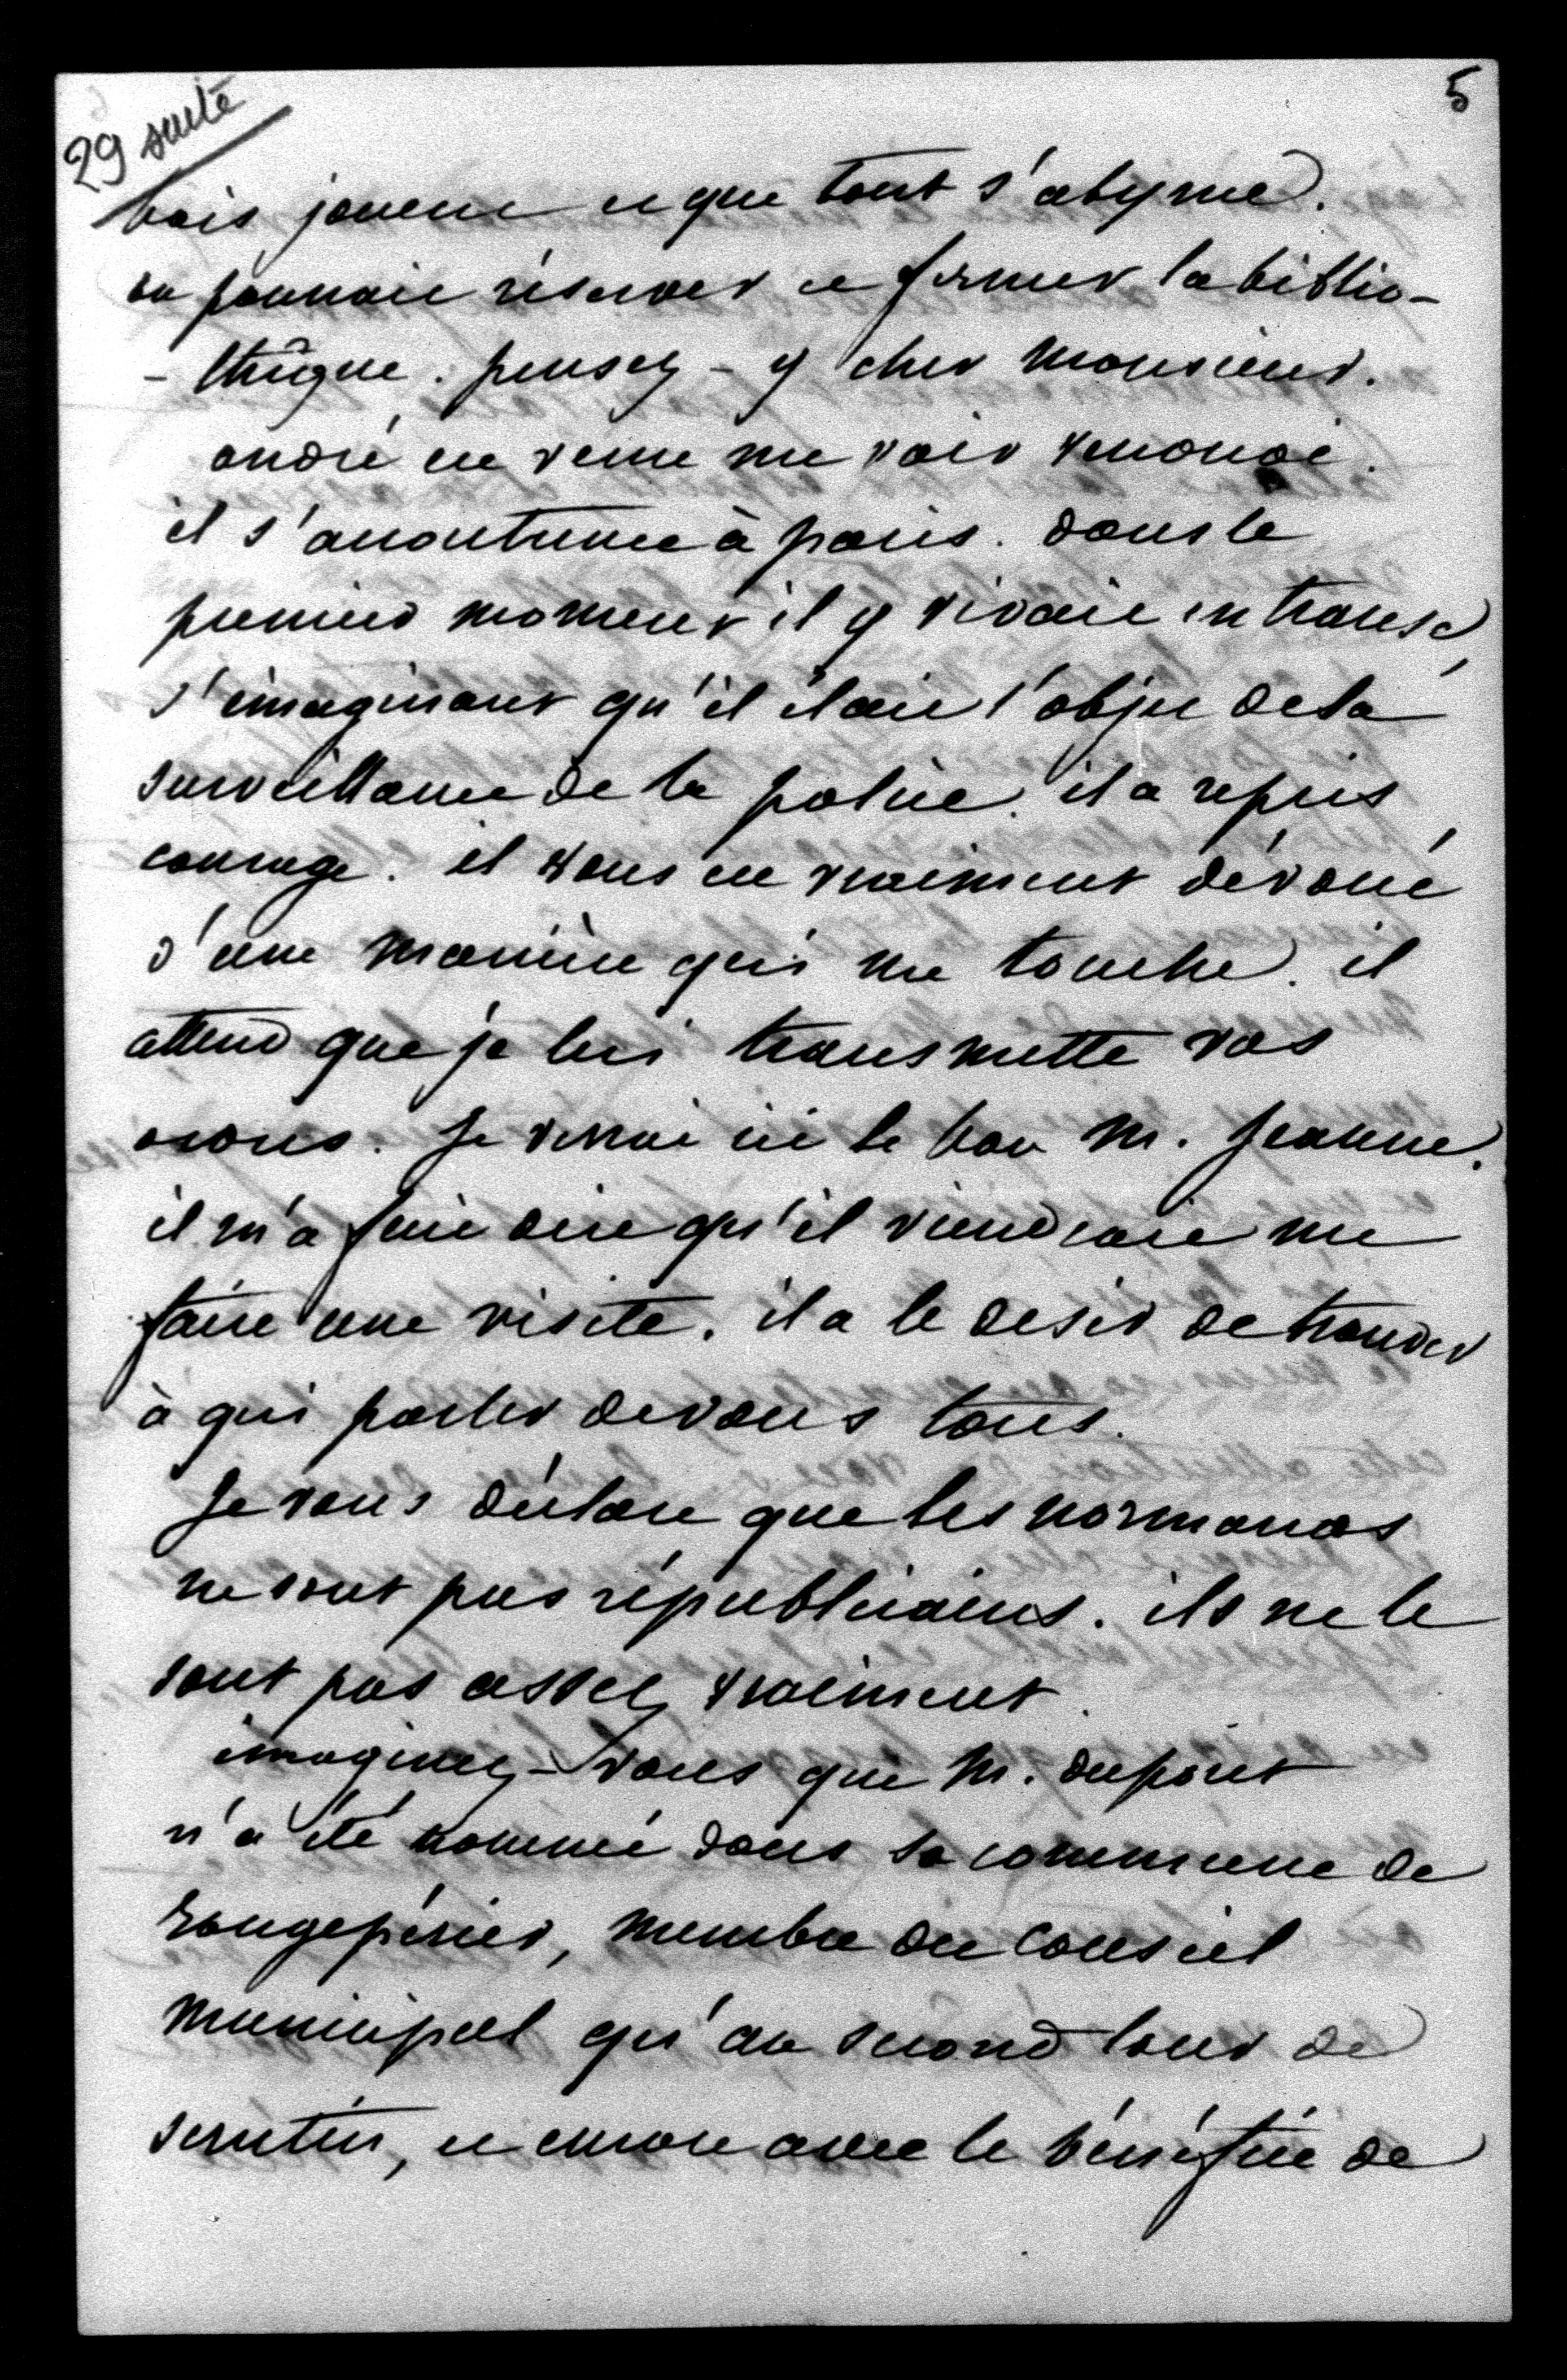 5
29 suite
bois jouent et que tout s'abyme.
on pourrait réserver et fermer la biblio-
- thèque. pensez-y cher Monsieur.
andré est venu me voir vendredi.
il s'accoutume à paris. dans le
premier moment il y vivait en transe,
s'imaginant qu'il était l'objet de la
surveillance de la police. il a repris
courage. il vous est vraiment dévoué
d'une manière qui me touche. il
attend que je lui transmette vos
ordres. Je verrai ici le bon M. Jeanne.
il m'a fait dire qu'il viendrait me
faire une visite. il a le desir de trouver
à qui parler de vous tous.
Je vous déclare que les normands
ne sont pas républicains. ils ne le
sont pas assez vraiment.
imaginez-vous que M. dupont
n'a été nommé dans sa commune de
rougepérier, membre du Conseil
Municipal qu'au second tour de
scrutin, et encore avec le bénéfice de